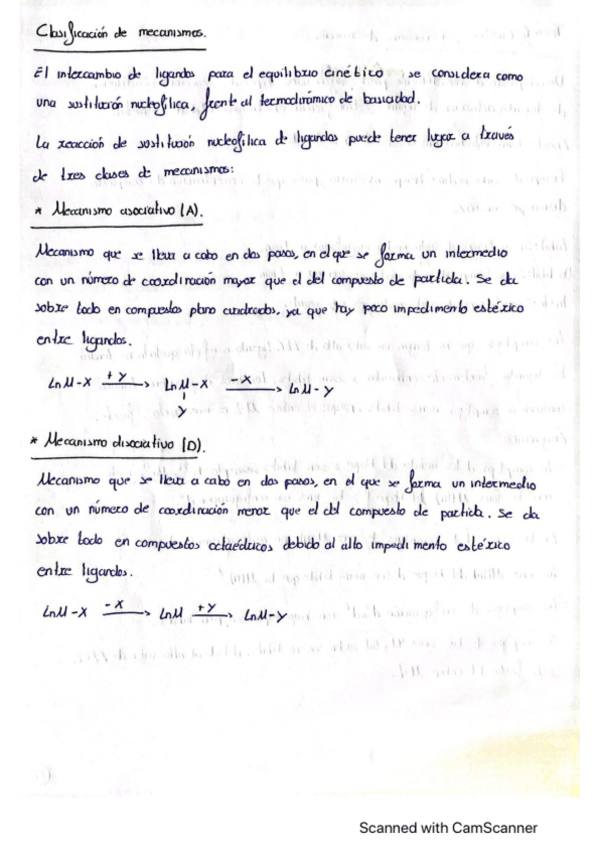 Clasificación de mecanismos.
El intercambio de ligandos para el equilibrio cinético se considera como
una sustitución nucleofílica, frente al termodinámico de basicidad.
La reacción de sustitución nucleofílica de ligandos puede tener lugar a través
de tres clases de mecanismos:
* Mecanismo asociativo (A).
Mecanismo que se lleva a cabo en dos pasos, en el que se forma un intermedio
con un número de coordinación mayor que el del compuesto de partida. Se da
sobre todo en compuestos plano cuadrados, ya que hay poco impedimento estérico
entre ligandos.
LnM-X +Y LnM-X -X LnM-Y
Y
* Mecanismo disociativo (D).
Mecanismo que se lleva a cabo en dos pasos, en el que se forma un intermedio
con un número de coordinación menor que el del compuesto de partida. Se da
sobre todo en compuestos octaédricos debido al alto impedimento estérico
entre ligandos.
LnM-X -X LnM +Y LnM-Y
Scanned with CamScanner